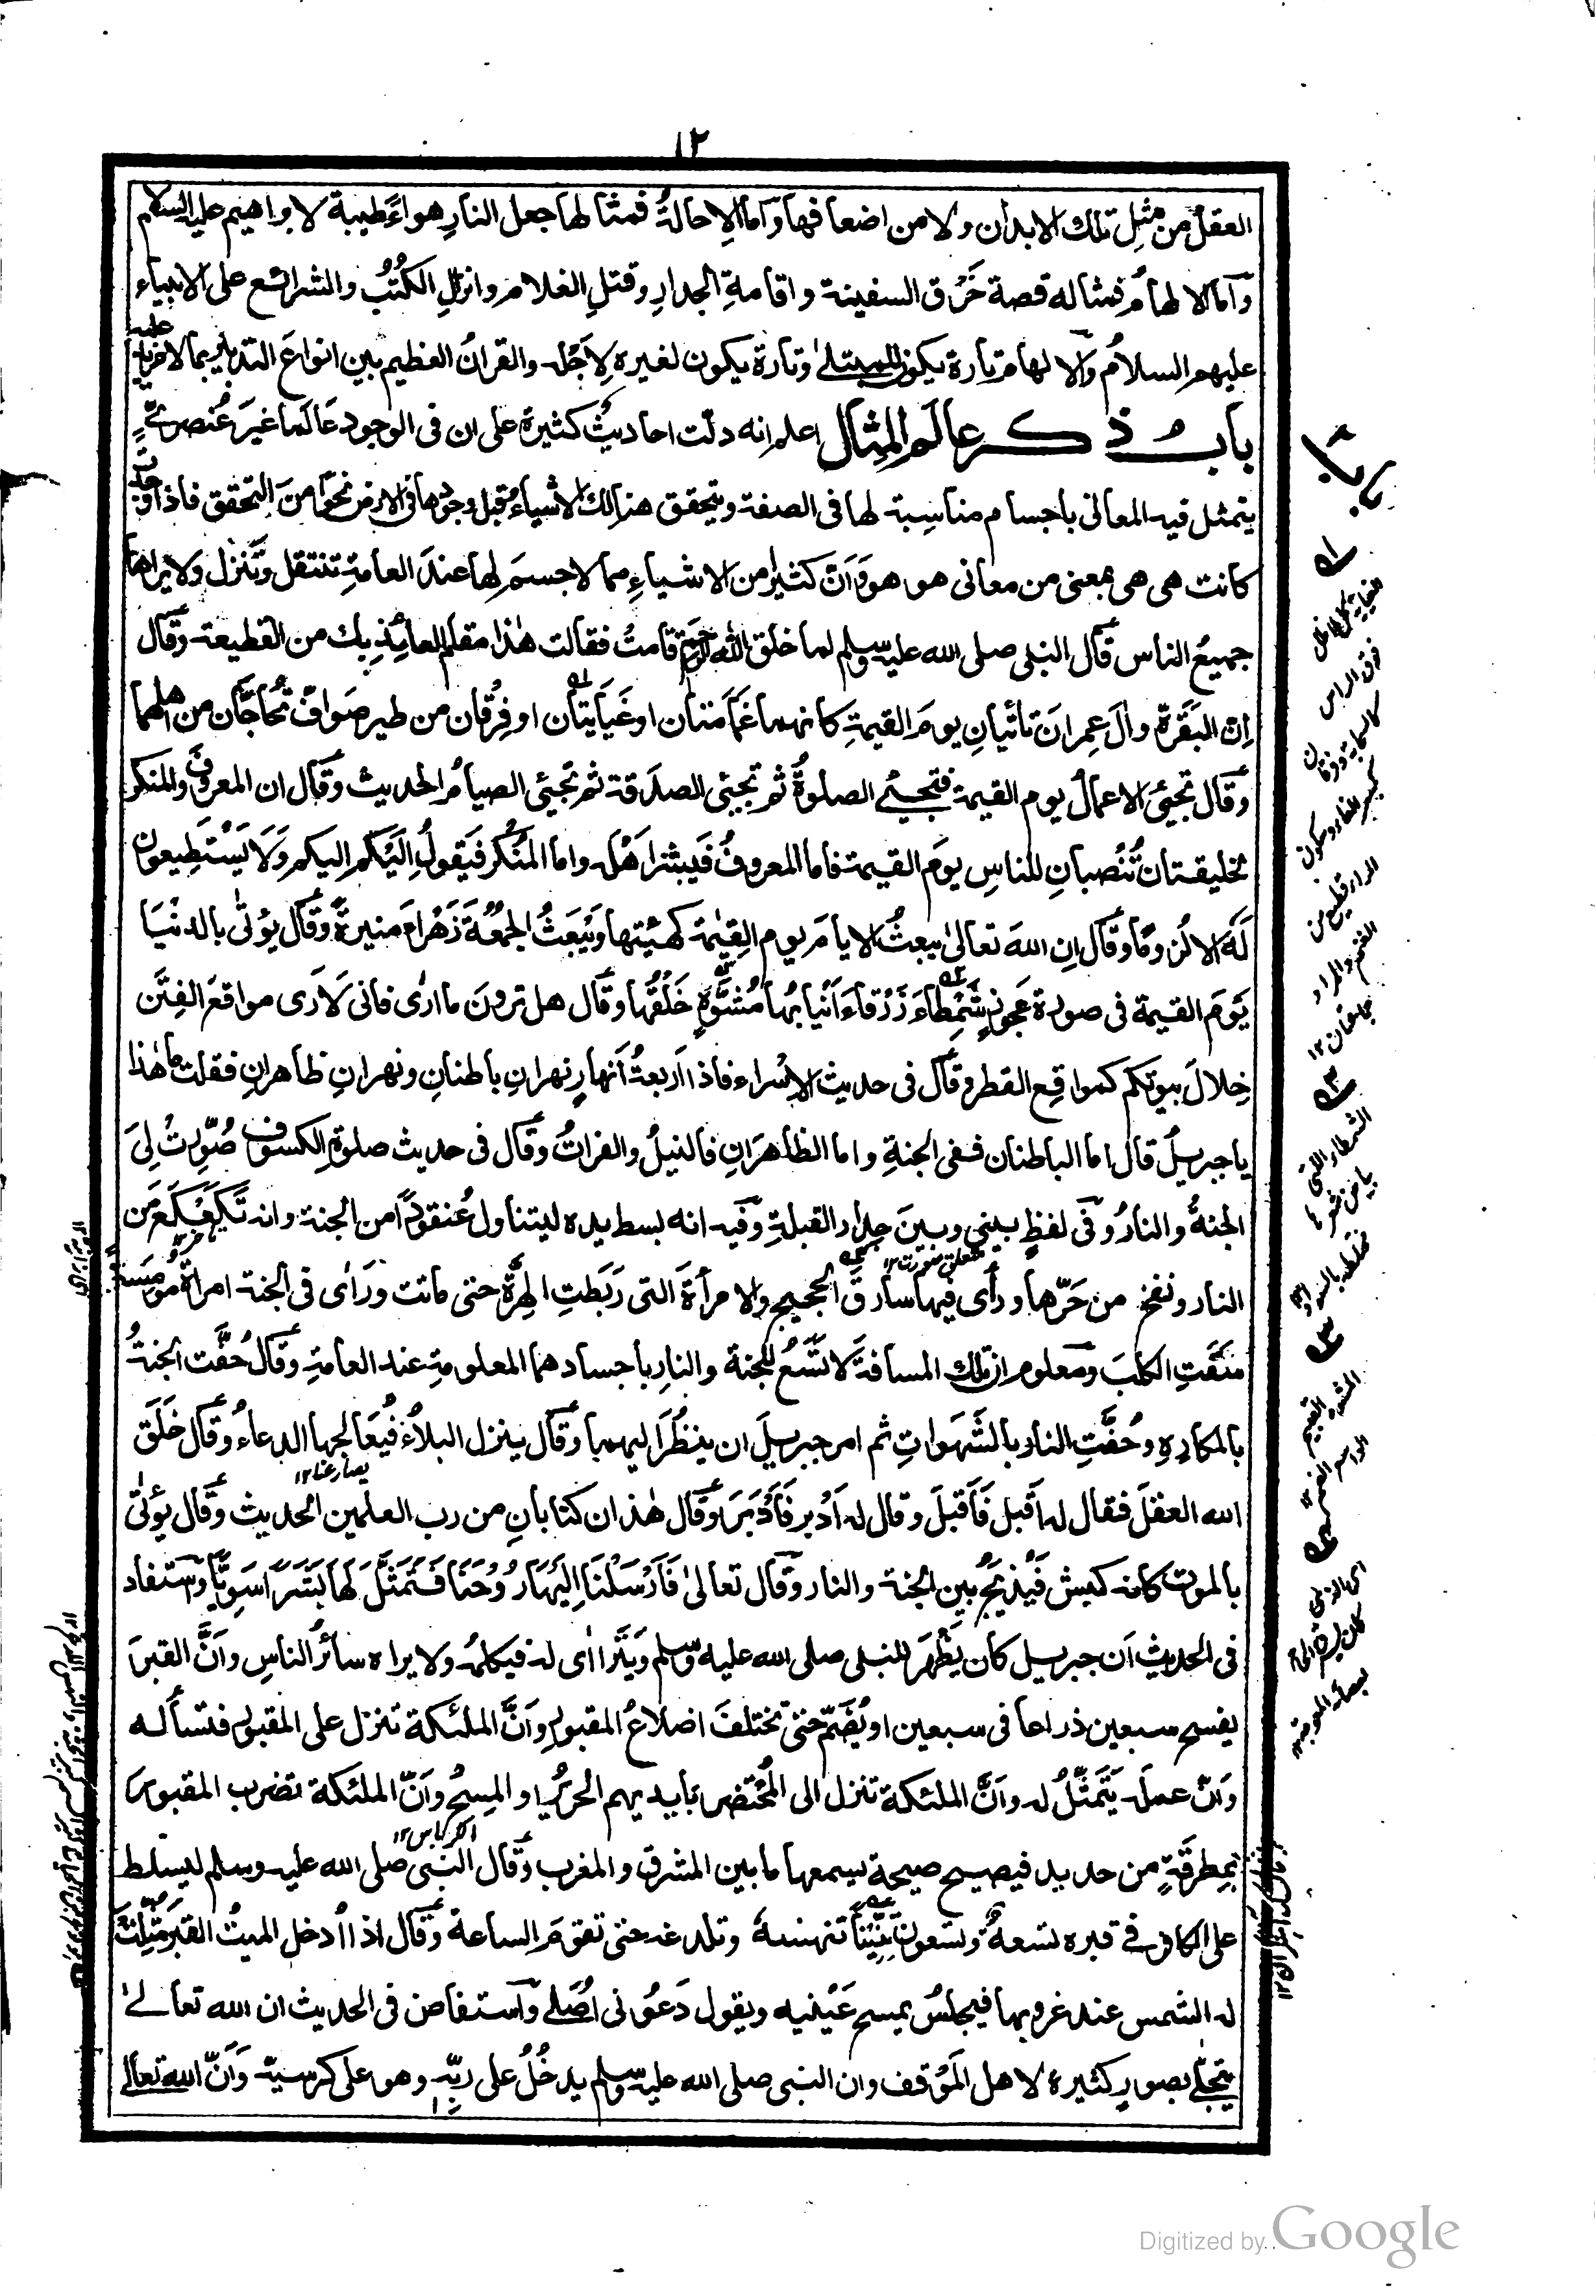 ١٢
العقل من مثل تلك الابدان ولا من اضعافها وَاما الاِحالةُ فمثالها جعل النارِ هواءً طيبة لابراهيم عليه السلام
وَاما الالهامُ فمثاله قصة خَرْق السفينة واقامةِ الجدارِ وقتلِ الغلام وانزالِ الكُتُب والشرائع على الانبياء
عليهم السلامُ وَالالهام تارة يكون للمبتلىٰ وتارة يكون لغيره لاِجْله والقرانُ العظيم بين انواعَ التدبير بما لا مزيد عليه
بابُ ذكر عالَم المِثال اعلم انه دلّت احاديثُ كثيرة على ان فى الوجود عَالَما غيرَ عُنصرىٍّ
يتمثل فيه المعانى باجسام مناسِبة لها فى الصفة ويتحقق هنالك الاشياءُ قبل وجودها فى الارض نحوًا من التحقق فاذا وجدت
كانت هى هى بمعنى من معانى هو هو وَاَنّ كثيرًا من الاشياءِ مما لا جسمَ لها عندَ العامةِ تنتقل وتَنزل ولا يراها
جميعُ الناس قَال النبى صلى الله عليه وسلم لما خلق الله الرحم قامتُ فقالت هٰذا مقام العائذِ بك من القطيعة وَقال
اِنّ البَقَرَة واٰلَ عِمرانَ تأتيانِ يومَ القيٰمةِ كانهما غَمَامتان او غَيَايَتان او فِرْقان من طير صَوافَّ تُحاجَّان من اهلهما
وَقال تجيئ الاعمالُ يوم القيٰمة فتجيئ الصلوةُ ثم تجيئ الصدَقة ثم تجيئ الصيامُ الحديث وَقال ان المعروفَ والمنكر
لخليقتان تُنْصَبانِ للناسِ يومَ القيٰمة فاما المعروفُ فيبشر اَهْلَه واما المُنْكَر فيَقولُ اِلَيْكم اليكم وَلَا يَسْتَطِيعون
لَه الا لُزومًا وَقال اِن اللهَ تعالىٰ يبعثُ الايامَ يوم القِيٰمة كهيْئتها ويَبعَثُ الجمُعَةَ زَهْراءَ منيرةً وَقال يؤتٰى بالدنْيَا
يَومَ القيٰمة فى صورة عَجوزٍ شَمْطاءَ زَرْقاءَ اَنْيابُها مُشَوَّهٍ خَلْقُها وَقال هل ترونَ ما ارٰى فانى لَاَرى مواقعَ الفِتَن
خِلالَ بيوتكم كمواقِع القطر وَقال فى حديث الاِسْراء فاذا اَربعةُ اَنهارٍ نهرانِ باطنانِ ونهرانِ ظاهرانِ فقلت ما هٰذا
يا جبريلُ قال اما الباطنان ففى الجنةِ واما الظاهرَانِ فالنيلُ والفراتُ وَقال فى حديث صلوةِ الكسوفِ صُوِّرتْ لِىَ
الجنةُ والنارُ وَفى لفظٍ بينى وبينَ جِدارِ القبلةِ وَفيه انه بسط يده ليتناول عُنقودًا من الجنة وانه تَكَعْكَعَ من
النار ونفخ من حَرّها ورأى فيها سارقَ الحجيج والامرأةَ التى رَبَطَتِ الهِرَّةَ حتى ماتت ورَاٰى فى الجنة امراةً مُومِسة
سَقَتِ الكلبَ ومَعلوم ان تلك المسافةَ لا تتَّسعُ للجنة والنارِ باجسادهما المعلومةِ عند العامةِ وَقال حُفَّت الجنةُ
بالمكارِهِ وحُفَّتِ النار بالشَّهَواتِ ثم امر جبريلَ ان ينظُرَ اليهما وَقال ينزل البلاءُ فيُعَالجها الدعاءُ وَقال خَلَقَ
يصارعها ١٢
الله العقلَ فقال له اَقبِل فَاَقبلَ وقال له اَدْبِر فَاَدْبَر وَقال هٰذان كتابانِ من رب العٰلمين الحديث وَقال يؤتٰى
بالموت كانه كبش فَيُذبَحُ بين الجنة والنار وَقال تعالىٰ فَاَرْسَلْنَا اِلَيْهَا رُوْحَنَا فَتَمَثَّلَ لَهَا بَشَرًا سَوِيًّا وَاستفاد
فى الحديث اَن جبريل كان يَظْهَر للنبى صلى الله عليه وسلم وَيَتَراٰاى له فيكلمه ولا يراه سائرُ الناسِ واَنَّ القبرَ
يفسح سبعين ذراعا فى سبعين او يُضَمّ حتى تختلفَ اضلاعُ المقبورِ واَنَّ الملٰئكة تنزل على المقبور فتسأله
واَنّ عملَه يَتَمَثّلُ له واَنَّ الملٰئكة تنزل الى المُحتضر بايديهم الحريرُ او المِسحُ واَنّ الملٰئكة تضرب المقبورَ
بمِطرقَةٍ من حديد فيصيح صيحة يسمعها ما بين المشرق والمغرب وَقال النبى صلى الله عليه وسلم ليسلط
على الكافر فى قبره تسعةٌ وتسعون تِنّينًا تنهسه وتلدغه حتى تقومَ الساعة وَقال اذا اُدخل الميتُ القبرَ مُثِّلتْ
له الشمس عند غروبها فيجلسُ يمسح عَيْنيه ويقول دَعُونى اُصَلى وَاستفاض فى الحديث ان الله تعالىٰ
يتجلىٰ بصورٍ كثيرة لاهل المَوْقف وان النبى صلى الله عليه وسلم يدخُلُ على ربّه وهو على كرسيّه واَنّ الله تعالىٰ
Digitized by Google